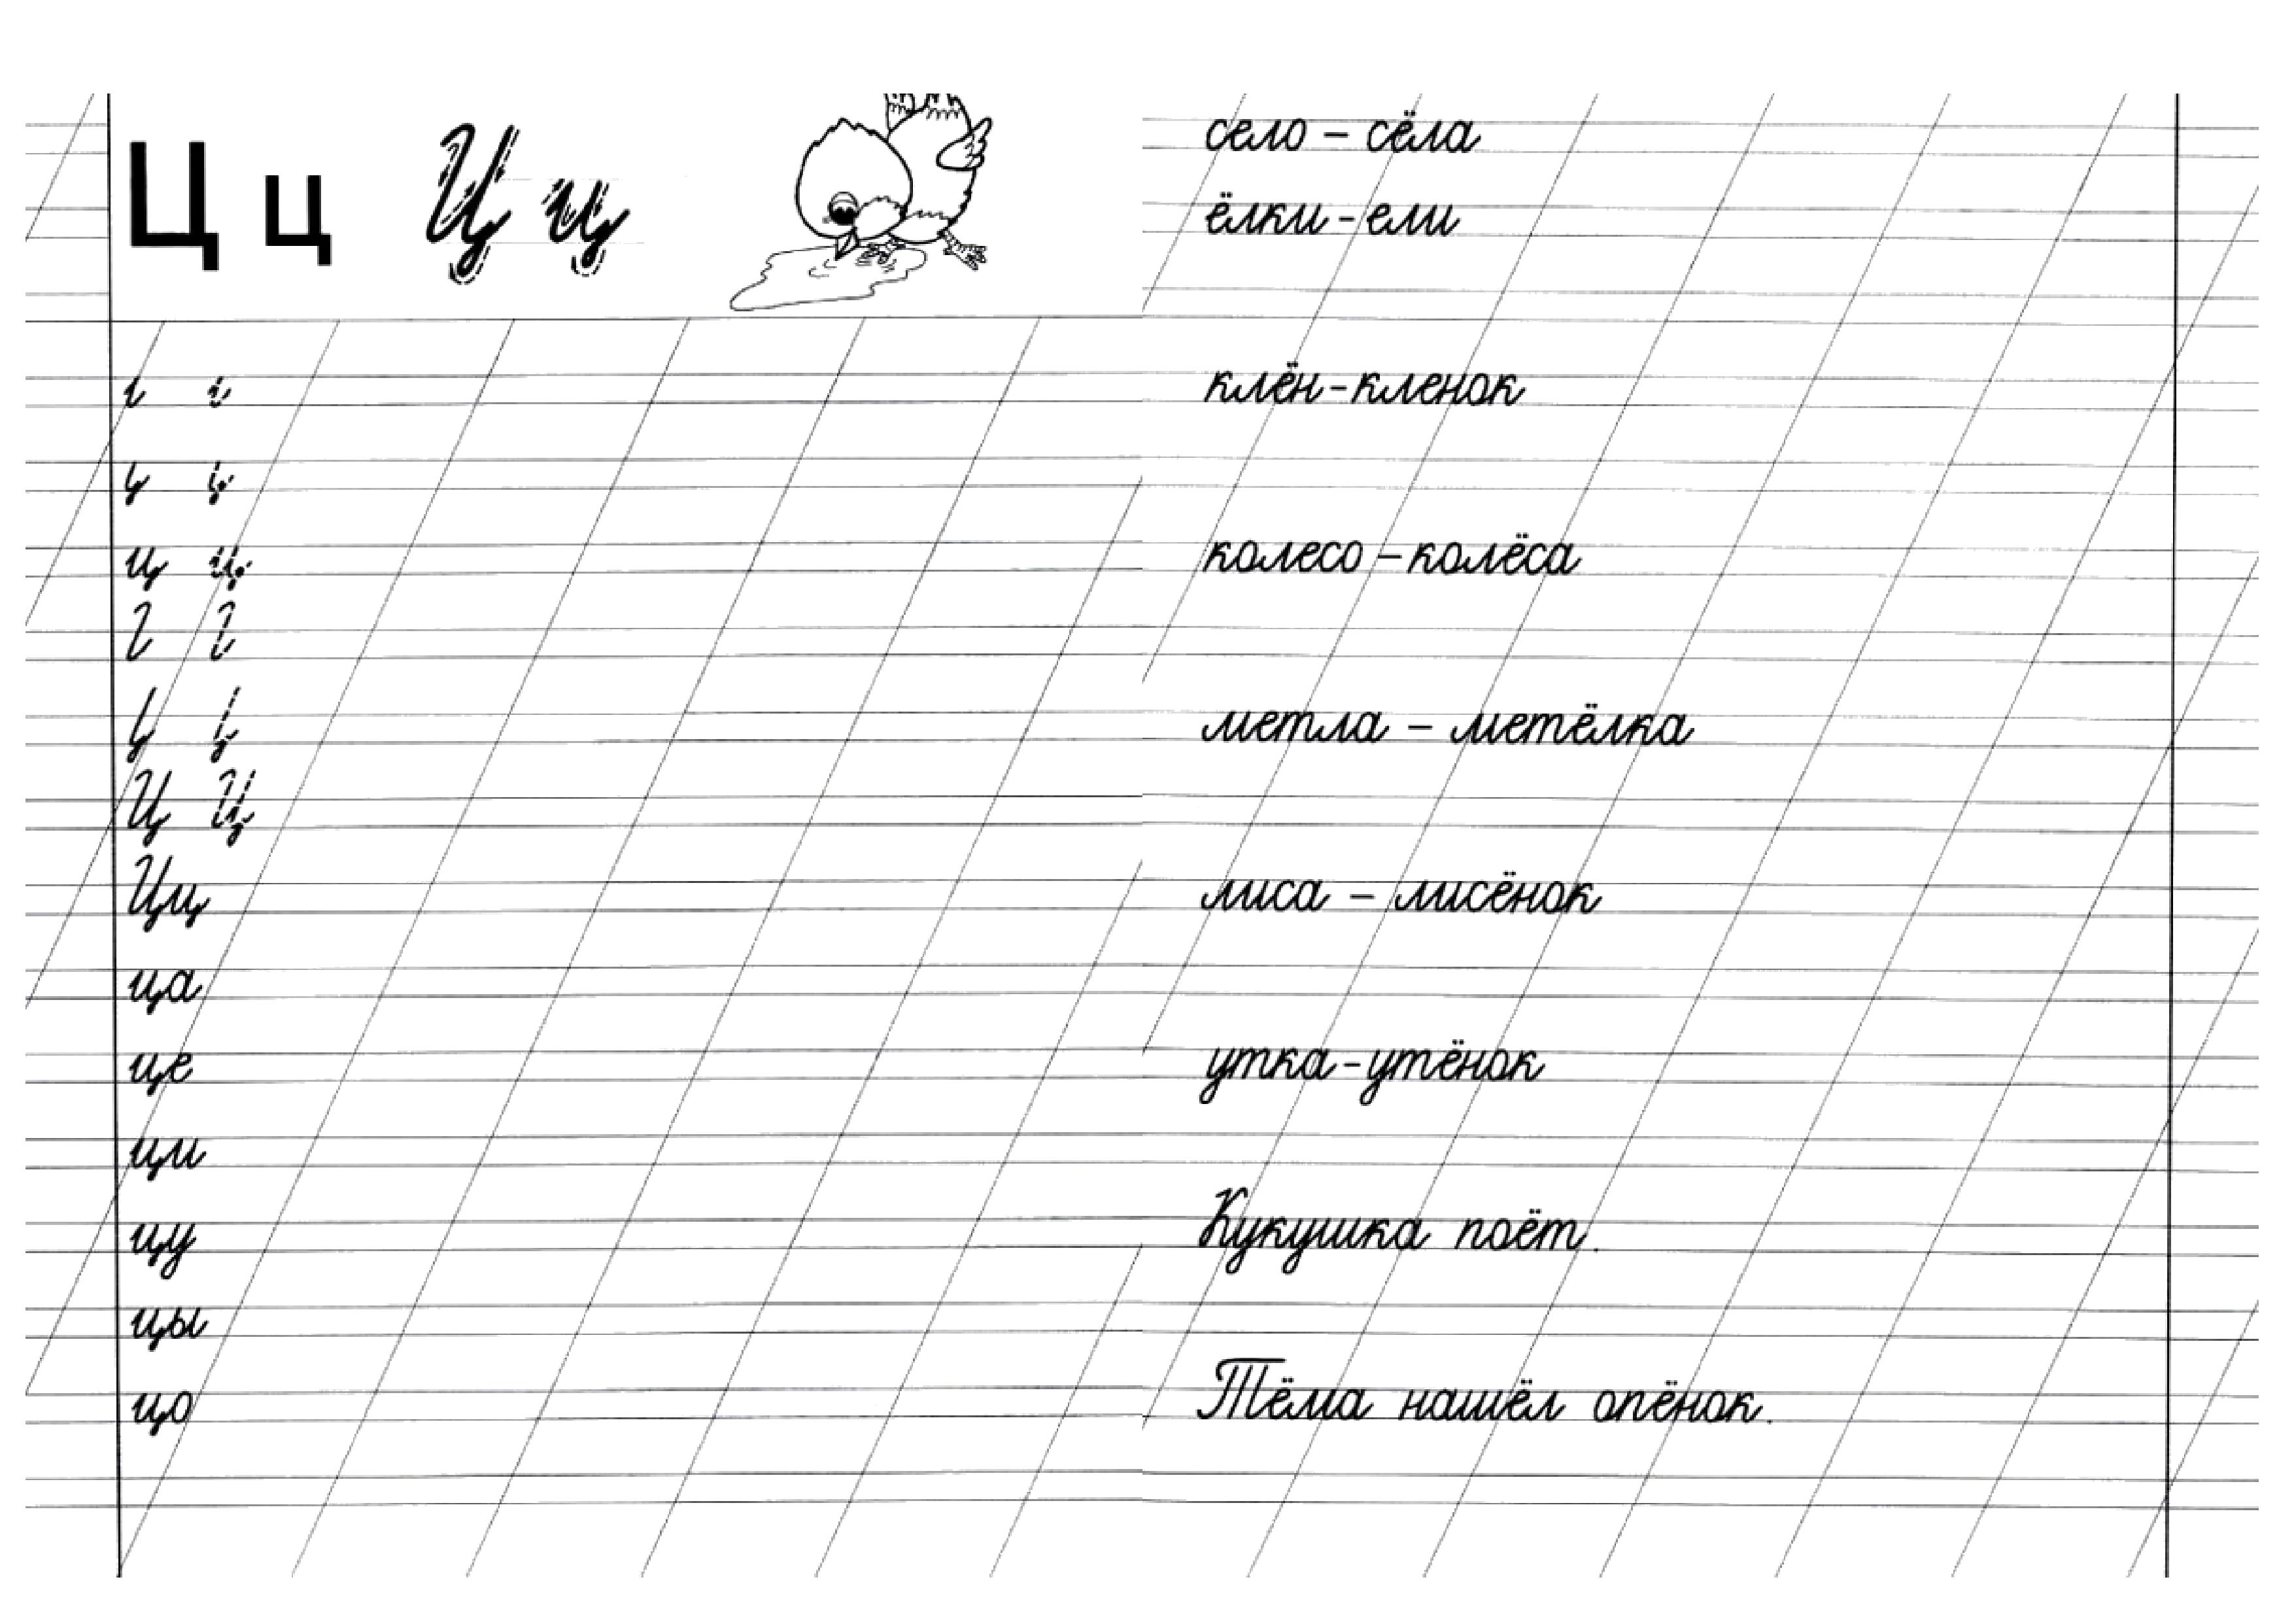 Ц ц Ц ц
ц ц
Ц Ц
Цц
ца
це
ци
цу
цы
цо
село – сёла
ёлки - ели
клён - кленок
колесо – колёса
метла – метёлка
лиса – лисёнок
утка - утёнок
Кукушка поёт.
Тёма нашёл опёнок.